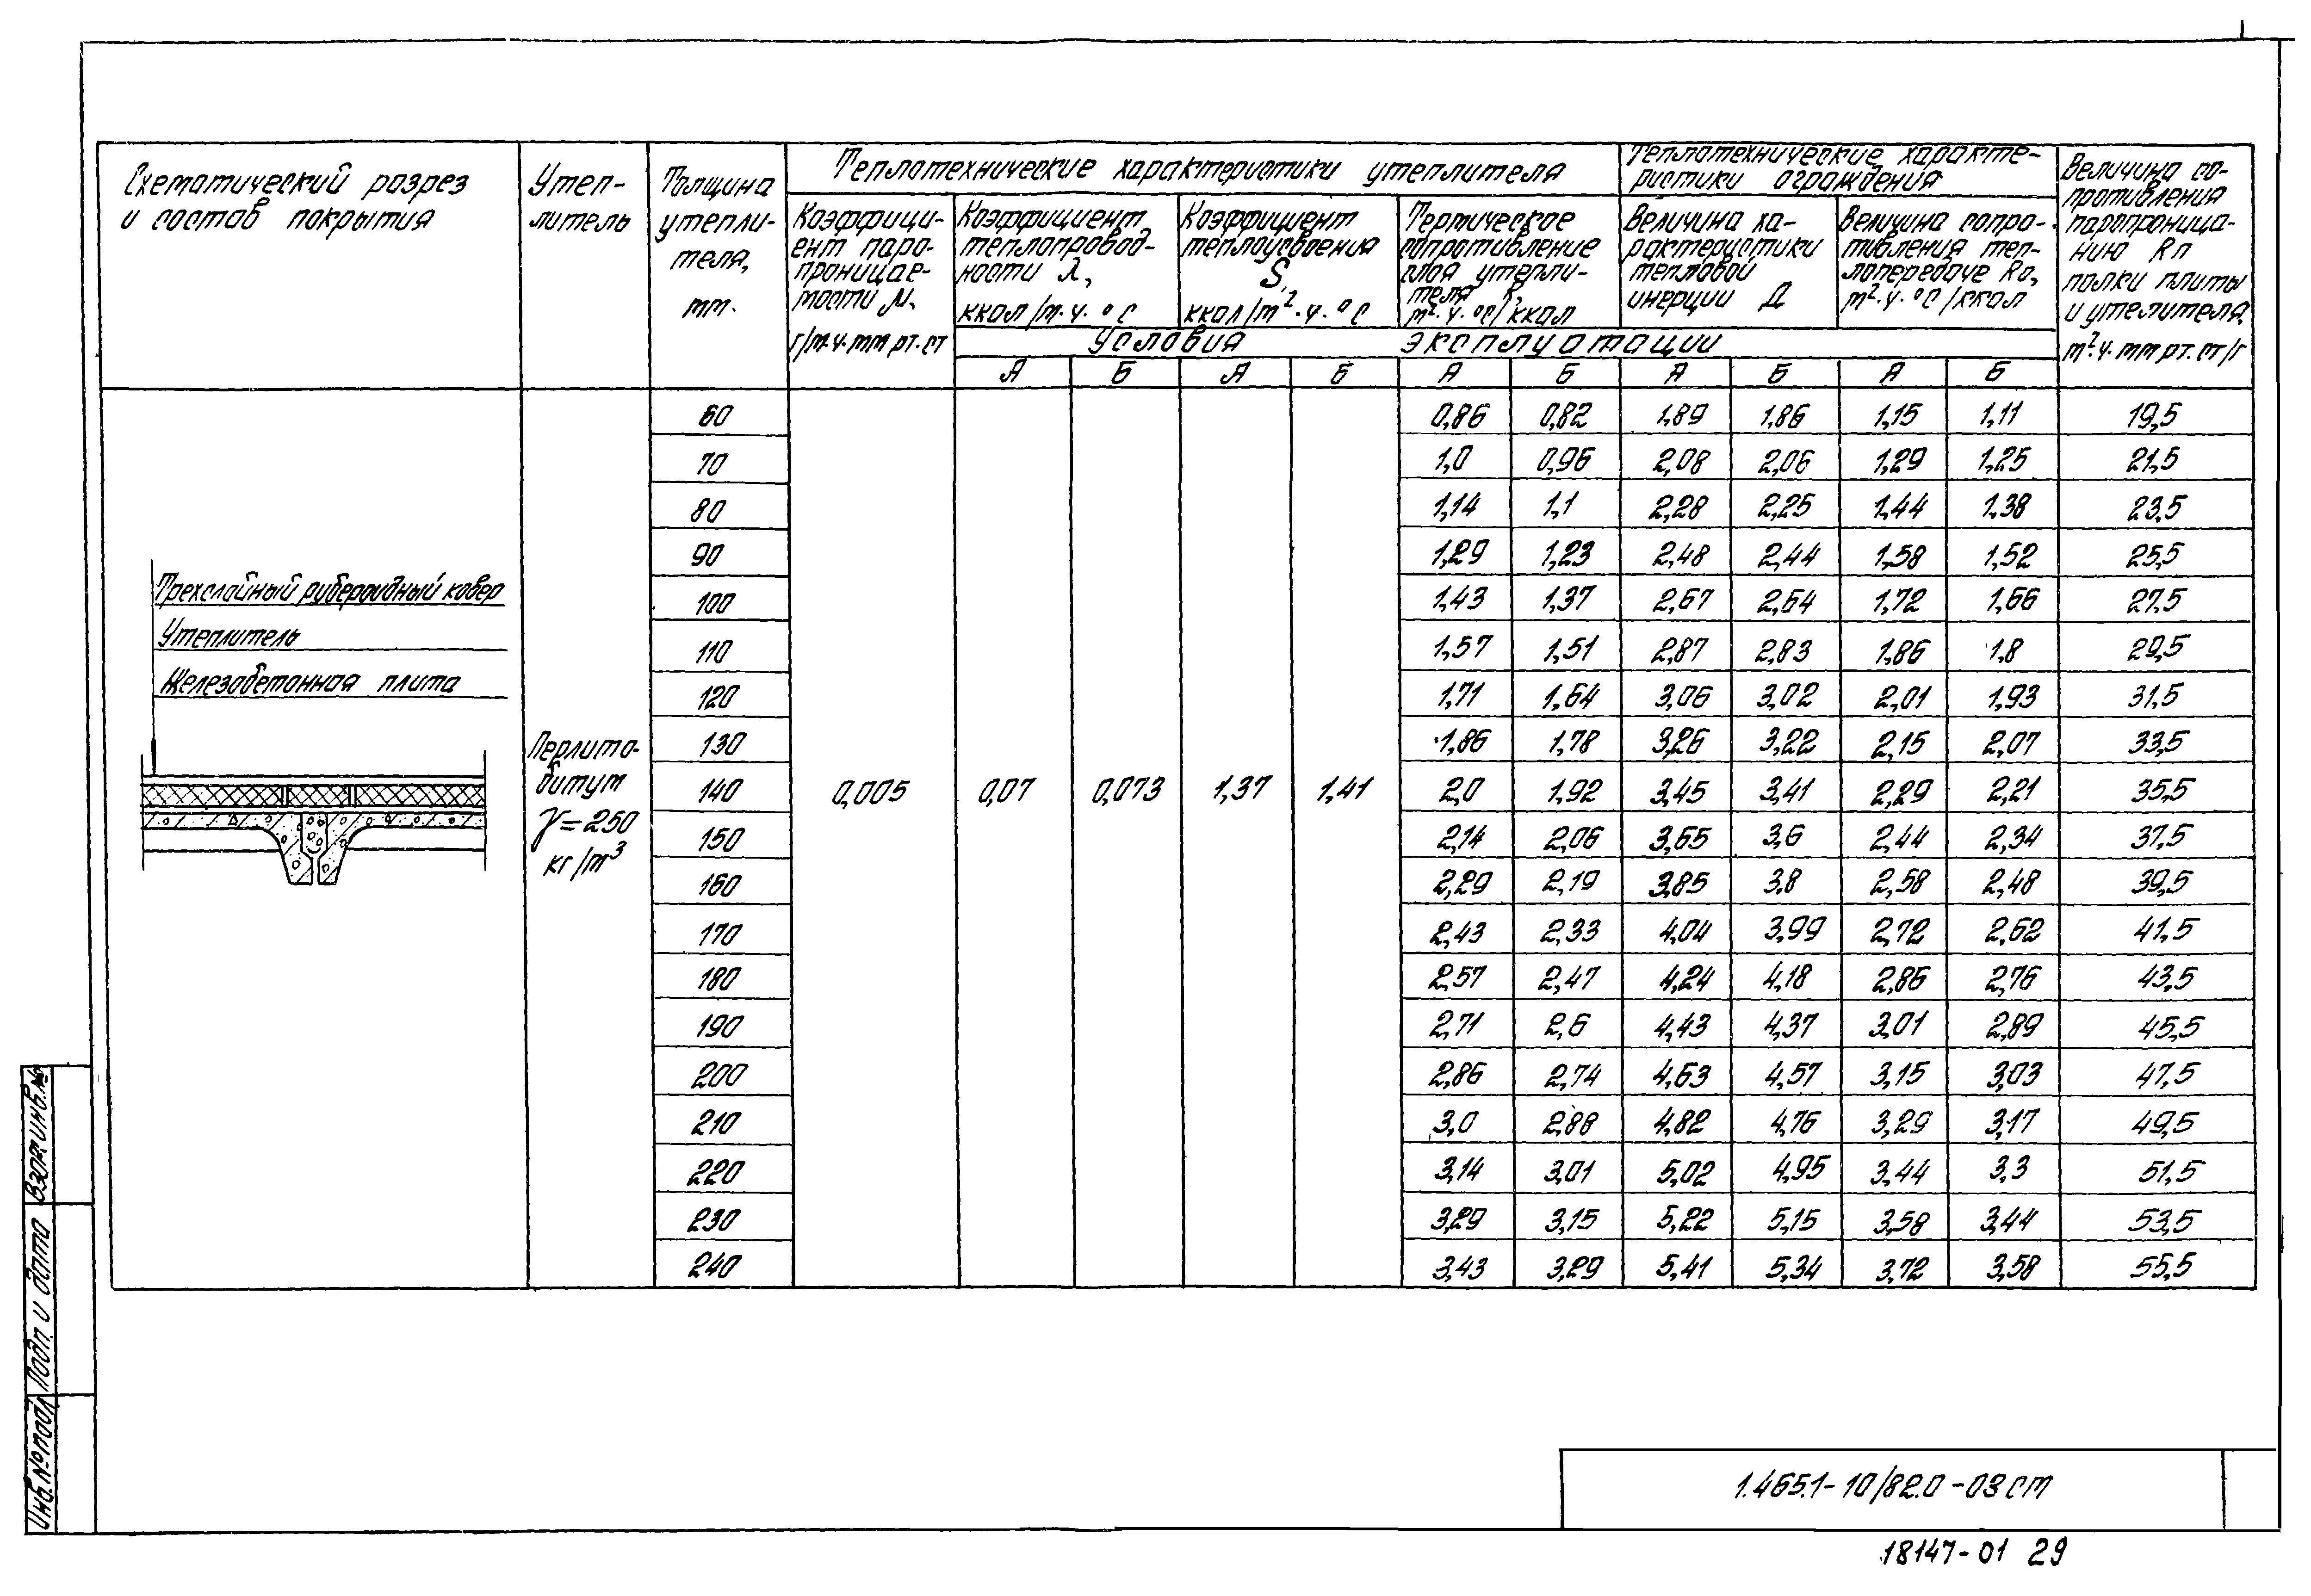 Схематический разрез
и состав покрытия
Утеп-
литель
Толщина
утепли-
теля,
мм.
Теплотехнические характеристики утеплителя
Коэффици-
ент паро-
проницае-
мости μ,
г/м.ч.мм рт.ст
Коэффициент
теплопровод-
ности λ,
ккал/м.ч.°С
Коэффициент
теплоусвоения
S,
ккал/м².ч.°С
Термическое
сопротивление
слоя утепли-
теля
м².ч.°С/ккал
Теплотехнические характе-
ристики ограждения
Величина ха-
рактеристики
тепловой
инерции Д
Величина сопро-
тивления теп-
лопередаче Rо,
м².ч.°С/ккал
Величина со-
противления
паропроница-
нию Rп
полки плиты
и утеплителя,
м².ч.мм рт.ст/г
Условия эксплуатации
А Б А Б А Б А Б А Б
60 0,86 0,82 1,89 1,86 1,15 1,11 19,5
70 1,0 0,96 2,08 2,06 1,29 1,25 21,5
80 1,14 1,1 2,28 2,25 1,44 1,38 23,5
90 1,29 1,23 2,48 2,44 1,58 1,52 25,5
100 1,43 1,37 2,67 2,64 1,72 1,66 27,5
110 1,57 1,51 2,87 2,83 1,86 1,8 29,5
120 1,71 1,64 3,06 3,02 2,01 1,93 31,5
130 1,86 1,78 3,26 3,22 2,15 2,07 33,5
140 0,005 0,07 0,073 1,37 1,41 2,0 1,92 3,45 3,41 2,29 2,21 35,5
150 2,14 2,06 3,65 3,6 2,44 2,34 37,5
160 2,29 2,19 3,85 3,8 2,58 2,48 39,5
170 2,43 2,33 4,04 3,99 2,72 2,62 41,5
180 2,57 2,47 4,24 4,18 2,86 2,76 43,5
190 2,71 2,6 4,43 4,37 3,01 2,89 45,5
200 2,86 2,74 4,63 4,57 3,15 3,03 47,5
210 3,0 2,88 4,82 4,76 3,29 3,17 49,5
220 3,14 3,01 5,02 4,95 3,44 3,3 51,5
230 3,29 3,15 5,22 5,15 3,58 3,44 53,5
240 3,43 3,29 5,41 5,34 3,72 3,58 55,5
Трехслойный рубероидный ковер
Утеплитель
Железобетонная плита
Перлито-
битум
γ=250
кг/м³
Взам. инв. №
Подп. и дата
Инв. № подл
1.465.1-10/82.0-03СМ
18147-01 29